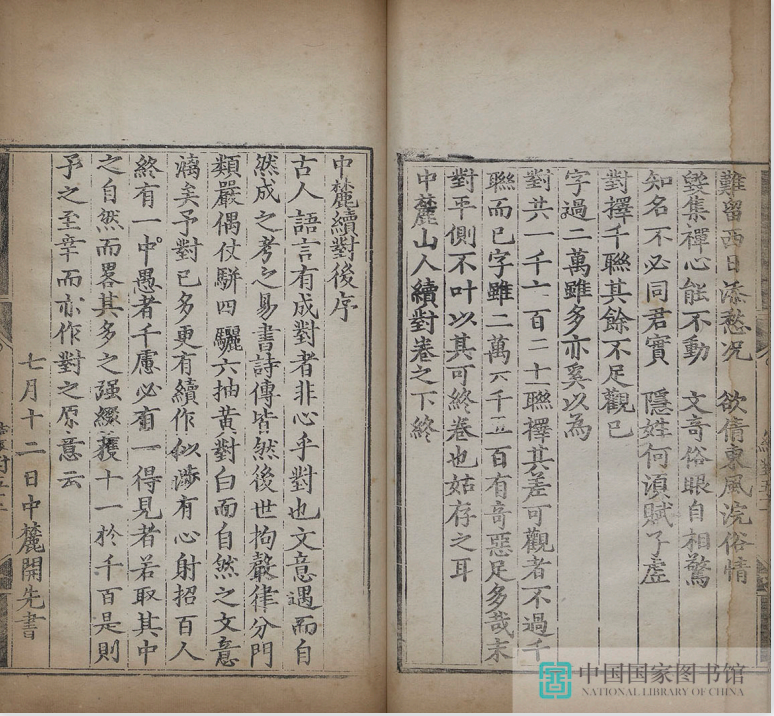 難留西日添愁况　欲倩東風浣俗情
毀集禪心能不動　文奇俗眼自相驚
知名不必同君實　隱姓何湏賦子虛
對擇千聯其餘不足觀已
字過二萬雖多亦奚以為
對共一千六百二十聯擇其差可觀者不過千
聯而已字雖二萬六千五百有奇惡足多哉末
對平側不叶以其可終卷也姑存之耳
中麓山人續對卷之下終
中麓續對後序
古人語言有成對者非心乎對也文意遇而自
然成之考之易書詩傳皆然後世拘聲律分門
類嚴偶仗駢四驪六抽黃對白而自然之文意
漓矣予對已多更有續作似涉有心射招百人
終有一中愚者千慮必有一得見者若取其中
之自然而畧其多之强綴獲十一於千百是則
予之至幸而亦作對之原意云
七月十二日中麓開先書
中国国家图书馆
NATIONAL LIBRARY OF CHINA